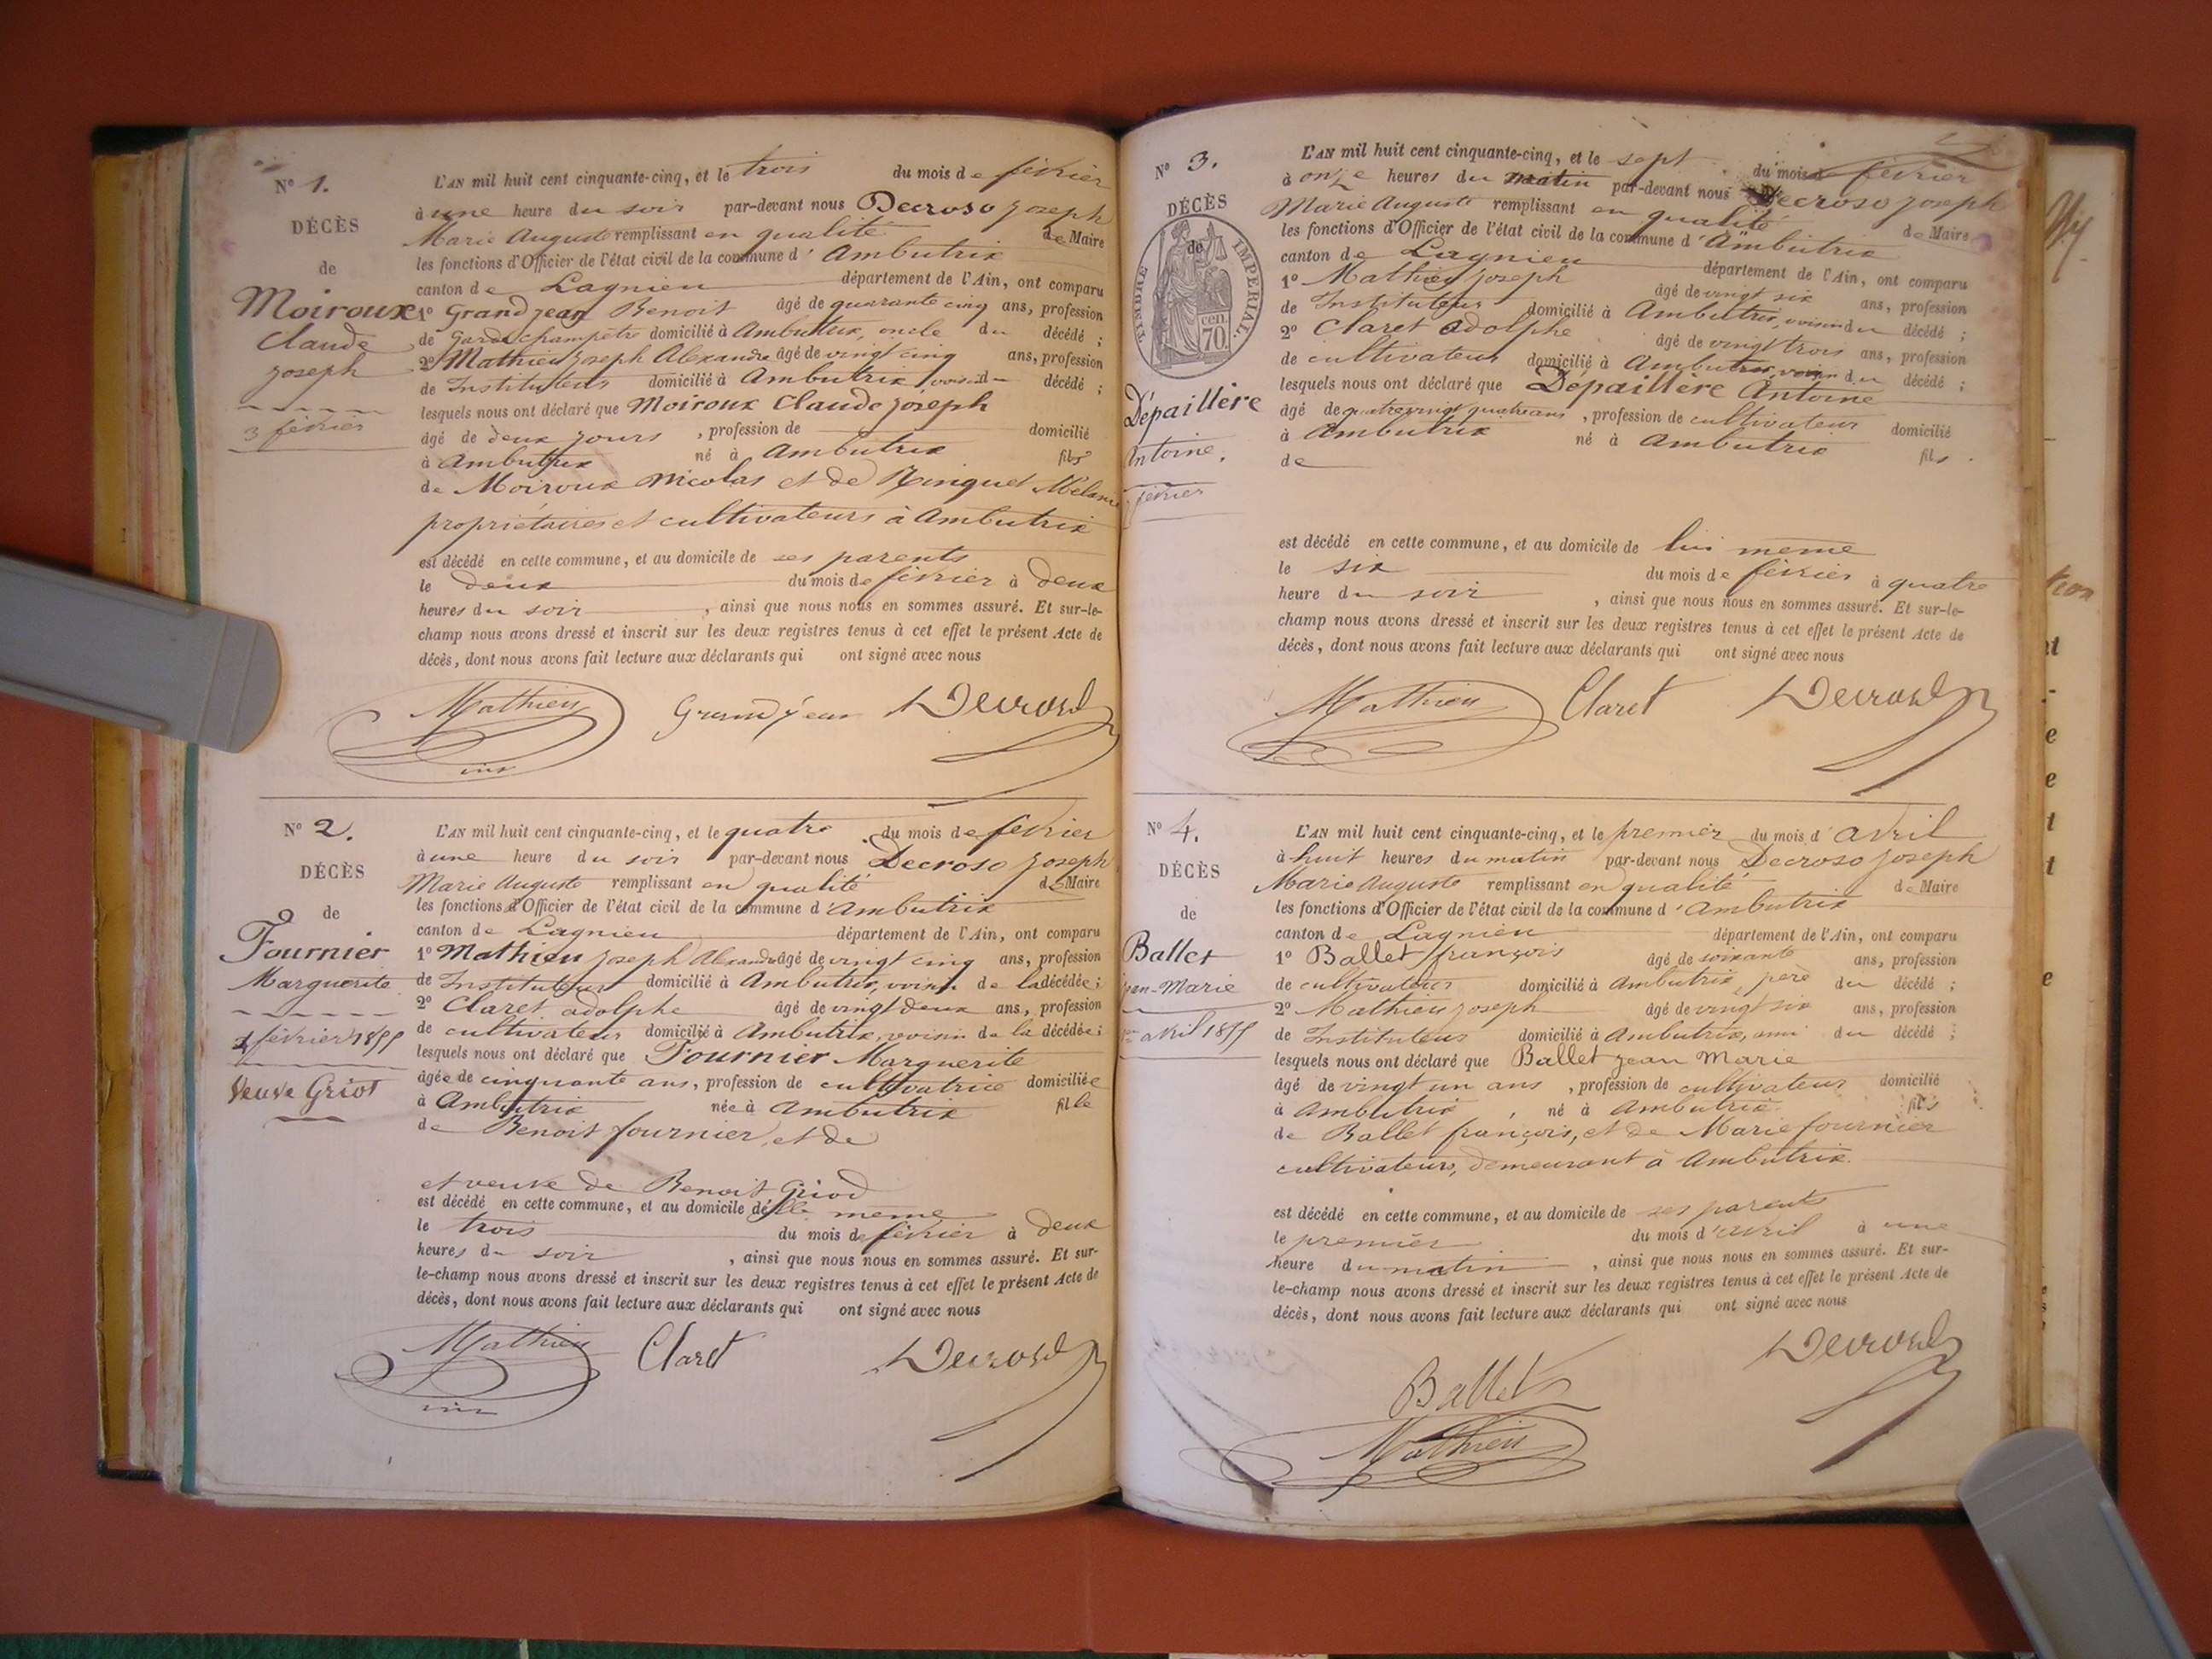 N° 1.
DÉCÈS
de
Moiroux
Claude
joseph
3 février
L'AN mil huit cent cinquante-cinq, et le trois du mois de février
à une heure du soir par-devant nous Decroso joseph
Marie Auguste remplissant en qualité de Maire
les fonctions d'Officier de l'état civil de la commune d'Ambutrix
canton de Lagnieu département de l'Ain, ont comparu
1° Grandjean Benoit âgé de quarante cinq ans, profession
de Garde champêtre domicilié à Ambutrix, oncle du décédé ;
2° Mathieu Joseph Alexandre âgé de vingt cinq ans, profession
de Instituteur domicilié à Ambutrix, décédé ;
lesquels nous ont déclaré que Moiroux Claude joseph
âgé de deux jours , profession de domicilié
à Ambutrix né à Ambutrix fils
de Moiroux Nicolas et de Ringuet Mélanie
propriétaires et cultivateurs à Ambutrix
est décédé en cette commune, et au domicile de ses parents
le deux du mois de février à deux
heures du soir , ainsi que nous nous en sommes assuré. Et sur-le-
champ nous avons dressé et inscrit sur les deux registres tenus à cet effet le présent Acte de
décès, dont nous avons fait lecture aux déclarants qui ont signé avec nous
Mathieu Grandjean Decroso
N° 2.
DÉCÈS
de
Fournier
Marguerite
4 février 1855
Veuve Griot
L'AN mil huit cent cinquante-cinq, et le quatre du mois de février
à une heure du soir par-devant nous Decroso joseph
Marie Auguste remplissant en qualité de Maire
les fonctions d'Officier de l'état civil de la commune d'Ambutrix
canton de Lagnieu département de l'Ain, ont comparu
1° Mathieu joseph Alexandre âgé de vingt cinq ans, profession
de Instituteur domicilié à Ambutrix, voisin de la décédée ;
2° Claret adolphe âgé de vingt deux ans, profession
de cultivateur domicilié à Ambutrix, voisin de la décédée ;
lesquels nous ont déclaré que Fournier Marguerite
âgée de cinquante ans, profession de cultivatrice domiciliée
à Ambutrix née à Ambutrix fille
de Benoit fournier, et de
et veuve de Benoit Griod
est décédé en cette commune, et au domicile d'elle meme
le trois du mois de février à deux
heures du soir , ainsi que nous nous en sommes assuré. Et sur-
le-champ nous avons dressé et inscrit sur les deux registres tenus à cet effet le présent Acte de
décès, dont nous avons fait lecture aux déclarants qui ont signé avec nous
Mathieu Claret Decroso
N° 3.
DÉCÈS
de
TIMBRE IMPERIAL.
70 cen
Dépaillère
Antoine.
février
L'AN mil huit cent cinquante-cinq, et le sept du mois de février
à onze heures du matin par-devant nous Decroso joseph
Marie Auguste remplissant en qualité de Maire
les fonctions d'Officier de l'état civil de la commune d'Ambutrix
canton de Lagnieu département de l'Ain, ont comparu
1° Mathieu joseph âgé de vingt six ans, profession
de Instituteur domicilié à Ambutrix, voisin du décédé ;
2° Claret adolphe âgé de vingt trois ans, profession
de cultivateur domicilié à Ambutrix, voisin du décédé ;
lesquels nous ont déclaré que Dépaillère Antoine
âgé de quatre vingt quatre ans , profession de cultivateur domicilié
à Ambutrix né à Ambutrix fils
de
est décédé en cette commune, et au domicile de lui meme
le six du mois de février à quatre
heure du soir , ainsi que nous nous en sommes assuré. Et sur-le-
champ nous avons dressé et inscrit sur les deux registres tenus à cet effet le présent Acte de
décès, dont nous avons fait lecture aux déclarants qui ont signé avec nous
Mathieu Claret Decroso
N° 4.
DÉCÈS
de
Ballet
jean-Marie
avril 1855
L'AN mil huit cent cinquante-cinq, et le premier du mois d'avril
à huit heures du matin par-devant nous Decroso joseph
Marie Auguste remplissant en qualité de Maire
les fonctions d'Officier de l'état civil de la commune d'Ambutrix
canton de Lagnieu département de l'Ain, ont comparu
1° Ballet françois âgé de soixante ans, profession
de cultivateur domicilié à Ambutrix, père du décédé ;
2° Mathieu joseph âgé de vingt six ans, profession
de Instituteur domicilié à Ambutrix, ami du décédé ;
lesquels nous ont déclaré que Ballet jean Marie
âgé de vingt un ans , profession de cultivateur domicilié
à Ambutrix , né à Ambutrix fils
de Ballet françois, et de Marie fournier
cultivateurs, demeurant à Ambutrix.
est décédé en cette commune, et au domicile de ses parents
le premier du mois d'avril à une
heure du matin , ainsi que nous nous en sommes assuré. Et sur-
le-champ nous avons dressé et inscrit sur les deux registres tenus à cet effet le présent Acte de
décès, dont nous avons fait lecture aux déclarants qui ont signé avec nous
Decroso
Ballet
Mathieu